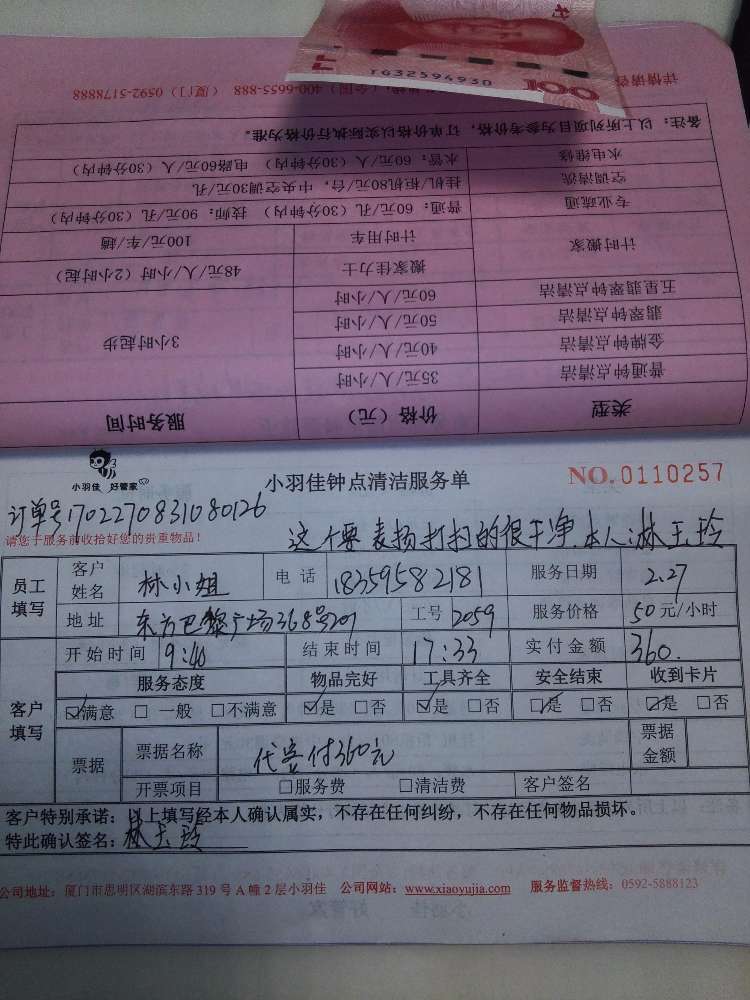 详情请咨 （全国）400-6655-888 （厦门）0592-5178888
TG32594930
100
类型 价格（元） 服务时间
普通钟点清洁 35元/人/小时
金牌钟点清洁 40元/人/小时
翡翠钟点清洁 50元/人/小时
五星翡翠钟点清洁 60元/人/小时
3小时起步
计时搬家 搬家佳力士 48元/人/小时（2小时起）
计时用车 100元/车/趟
专业疏通 普通：60元/孔（30分钟内） 技师：90元/孔（30分钟内）
空调清洗 挂机/柜机80元/台，中央空调30元/孔
水电维修 水管：60元/人（30分钟内） 电路60元/人（30分钟内）
备注：以上所列项目为参考价格，订单价格以实际执行价格为准。
小羽佳 好管家
小羽佳钟点清洁服务单
NO.0110257
订单号1702270831080126
请您于服务前收拾好您的贵重物品！
这个要表扬打扫的很干净.本人:林玉玲
员工填写 客户姓名 林小姐 电话 18359582181 服务日期 2.27
地址 东方巴黎广场368号201 工号 2059 服务价格 50元/小时
客户填写 开始时间 9:40 结束时间 17:33 实付金额 360.
服务态度 物品完好 工具齐全 安全结束 收到卡片
☑满意 □一般 □不满意 ☑是 □否 ☑是 □否 ☑是 □否 ☑是 □否
票据 票据名称 代客付360元 票据金额
开票项目 □服务费 □清洁费 客户签名
客户特别承诺：以上填写经本人确认属实，不存在任何纠纷，不存在任何物品损坏。
特此确认签名：林玉玲
公司地址：厦门市思明区湖滨东路 319 号 A 幢 2 层小羽佳 公司网站：www.xiaoyujia.com 服务监督热线：0592-5888123